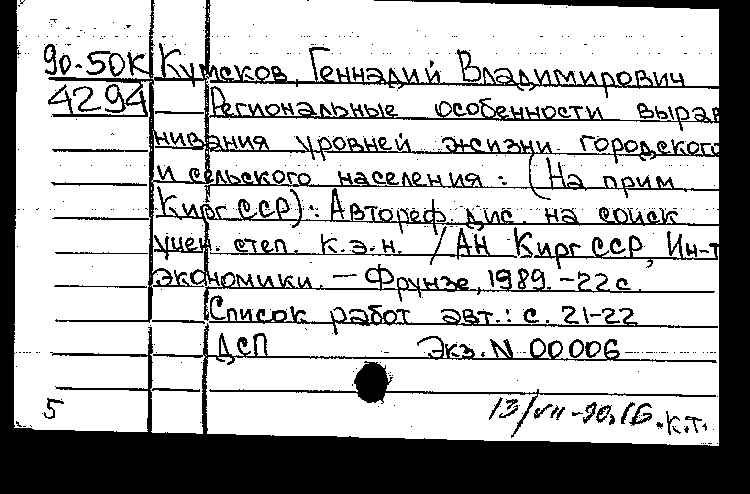 90-50К Кумсков, Геннадий Владимирович
4294 Региональные особенности вырав
нивания уровней жизни городского
и сельского населения: (На прим.
Кирг ССР): Автореф. дис. на соиск
учен. степ. к.э.н. /АН Кирг ССР, Ин-т
экономики. — Фрунзе, 1989. -22 с.
Список работ авт.: с. 21-22
ДСП Экз. N 00006
5 13/VII-90. 16. К.Т.